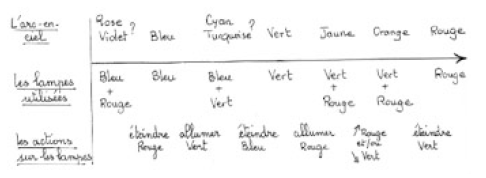 L'arc-en-ciel
Rose Violet ? Bleu Cyan Turquoise ? Vert Jaune Orange Rouge
Les lampes utilisées
Bleu + Rouge Bleu Bleu + Vert Vert Vert + Rouge Vert + Rouge Rouge
Les actions sur les lampes
éteindre Rouge allumer Vert éteindre Bleu allumer Rouge ↑ Rouge et/ou ↘ Vert éteindre Vert